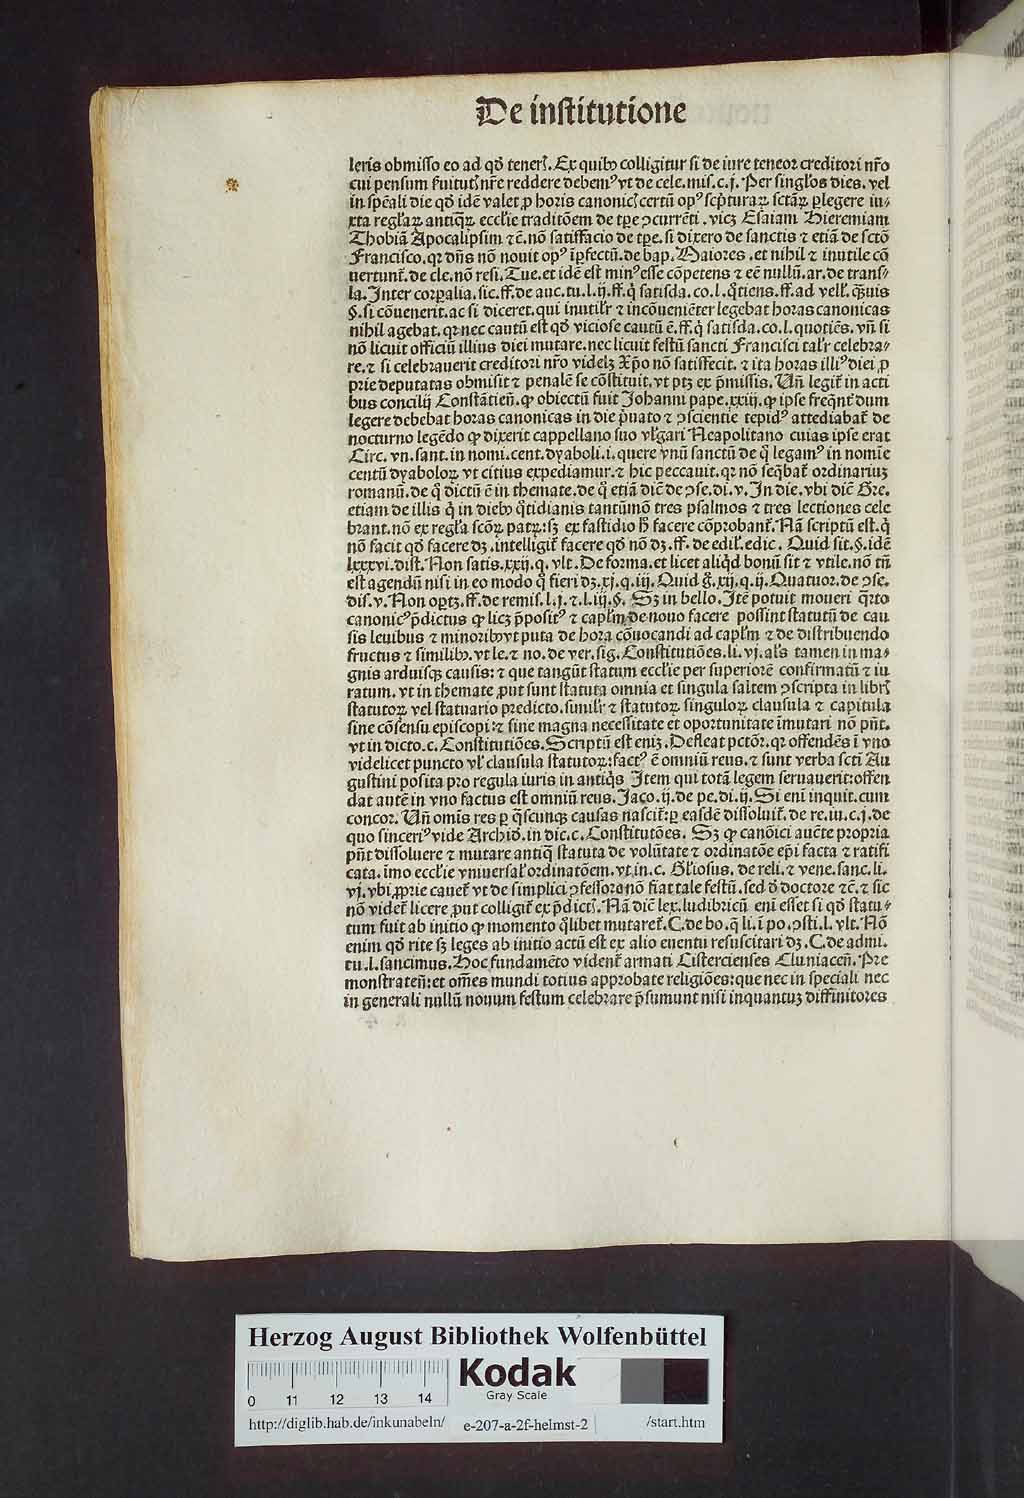 De institutione
leris obmisso eo ad qd̄ teneriꝭ. Ex quibꝰ colligitur si de iure teneor creditori nr̄o
cui pensum ẜuitutꝭ nr̄e reddere debemꝰ vt de cele. mis. c. j. Per singl'os dies. vel
in spēali die qd̄ idē valet ꝓ horis canonicꝭ certū opꝰ scp̄turaꝝ sctāꝝ p̲legere iu⸗
xta regl'aꝝ antiqꝝ eccl'ie traditōem de tp̄e ꝯcurrēti. vicꝫ Esaiam Hieremiam
Thobiā Apocalipsim ⁊c̄. nō satisfacio de tp̄e. si dixero de sanctis ⁊ etiā de sctō
Francisco. qꝛ dn̄s nō nouit opꝰ īꝑfectū. de bap. Maiores. et nihil ⁊ inutile cō
uertunt̄. de cle. nō resi. Tue. et idē est minꝰ esse cōpetens ⁊ eē nullū. ar. de trans⸗
la. Inter corꝑalia. sic. ff. de auc. tu. l. ij. ff. q̄ satisda. co. l. q̄tiens. ff. ad vell'. qȝuis
§. si cōuenerit. ac si diceret. qui inutil'r ⁊ incōueniēter legebat horas canonicas
nihil agebat. qꝛ nec cautū est qd̄ viciose cautū ē. ff. q̄ satisda. co. l. quotiēs. vn̄ si
nō licuit officiū illius diei mutare. nec licuit festū sancti Francisci tal'r celebra⸗
re. ⁊ si celebrauerit creditori nr̄o videlꝫ Xp̄o nō satisfecit. ⁊ ita horas illiꝰ diei ꝓ
prie deputatas obmisit ⁊ penalē se cōstituit. vt ptꝫ ex p̄missis. Un̄ legit̄ in acti
bus concilij Constātien̄. ꝙ obiectū fuit Johanni pape. xxiij. ꝙ ipse freqn̄t dum
legere debebat horas canonicas in die p̄uato ⁊ ꝯscientie tepidꝰ attediabat̄ de
nocturno legēdo ꝙ dixerit cappellano suo vl'gari Neapolitano cuias ipse erat
Circ. vn. sant. in nomi. cent. dyaboli. i. quere vnū sanctū de q̄ legamꝰ in nomīe
centū dyaboloꝝ vt citius expediamur. ⁊ hic peccauit. qꝛ nō seq̄bat̄ ordinariuꝫ
romanū. de q̄ dictū ē in themate. de q̄ etiā dic̄ de ꝯse. di. v. In die. vbi dic̄ Gre.
etiam de illis q̄ in diebꝰ q̄tidianis tantūmō tres psalmos ⁊ tres lectiones cele
brant. nō ex regl'a scōꝝ patꝝ: sꝫ ex fastidio h̄ facere cōprobant̄. Nā scriptū est. q̄
nō facit qd̄ facere dꝫ. intelligit̄ facere qd̄ nō dꝫ. ff. de edil'. edic. Quid sit. §. idē
lxxxvi. dist. Non satis. xxij. q. vlt. De forma. et licet aliqd̄ bonū sit ⁊ vtile. nō tn̄
est agendū nisi in eo modo q̄ fieri dꝫ. xj. q. iij. Quid g̊. xij. q. ij. Quatuor. de ꝯse.
dis. v. Non oꝑtꝫ. ff. de remis. l. j. ⁊. l. iij. §. Sꝫ in bello. Itē potuit moueri q̄rto
canonicꝰ p̄dictus ꝙ licꝫ p̄positꝰ ⁊ capl'm de nouo facere possint statutū de cau
sis leuibus ⁊ minoribꝰ vt puta de hora cōuocandi ad capl'm ⁊ de distribuendo
fructus ⁊ similibꝰ. vt le. ⁊ no. de ver. sig. Constitutiōes. li. vj. al's tamen in ma⸗
gnis arduisqꝫ causis: ⁊ que tangūt statum eccl'ie per superiorē confirmatū ⁊ iu
ratum. vt in themate ꝓut sunt statuta omnia et singula saltem ꝯscripta in libr̄ꝭ
statutoꝝ vel statuario predicto. simil'r ⁊ statutoꝝ singuloꝝ clausula ⁊ capitula
sine cōsensu episcopi: ⁊ sine magna necessitate et oportunitate īmutari nō pn̄t.
vt in dicto. c. Constitutiōes. Scriptū est eniꝫ. Defleat pctōꝛ. qꝛ offendēs ī vno
videlicet puncto vl' clausula statutoꝝ: factꝰ ē omniū reus. ⁊ sunt verba scti Au
gustini posita pro regula iuris in antiq̄s Item qui totā legem seruauerit: offen
dat autē in vno factus est omniū reus. Jaco. ij. de pe. di. ij. Si enī inquit. cum
concor. Un̄ omīs res ꝑ q̄scunqꝫ causas nascit̄: ꝑ easdē dissoluit̄. de re. iu. c. j. de
quo sinceriꝰ vide Archid. in dic. c. Constitutōes. Sꝫ ꝙ canōici aucte propria
pn̄t dissoluere ⁊ mutare antiq̄ statuta de volūtate ⁊ ordinatōe ep̄i facta ⁊ ratifi
cata. īmo eccl'ie vniuersal' ordinatōem. vt. in. c. Gl'iosus. de reli. ⁊ vene. sanc. li.
vj. vbi ꝓprie cauet̄ vt de simplici ꝯfessore nō fiat tale festū. sed d̄ doctore ⁊c̄. ⁊ sic
nō videt̄ licere ꝓut colligit̄ ex p̄dictꝭ. Nā dic̄ lex. ludibricū enī esset si qd̄ statu⸗
tum fuit ab initio ꝙ momento q̄libet mutaret̄. C. de bo. q̄ li. ī po. ꝯsti. l. vlt. Nō
enim qd̄ rite sꝫ leges ab initio actū est ex alio euentu resuscitari dꝫ. C. de admi.
tu. l. sancimus. Hoc fundamēto vident̄ armati Cistercienses Cluniacen̄. Pre
monstraten̄: et om̄es mundi totius approbate religiōes: que nec in speciali nec
in generali nullū nouum festum celebrare p̄sumunt nisi inquantuꝫ diffinitores
Herzog August Bibliothek Wolfenbüttel
Kodak
Gray Scale
0 11 12 13 14
http://diglib.hab.de/inkunabeln/ e-207-a-2f-helmst-2 /start.htm